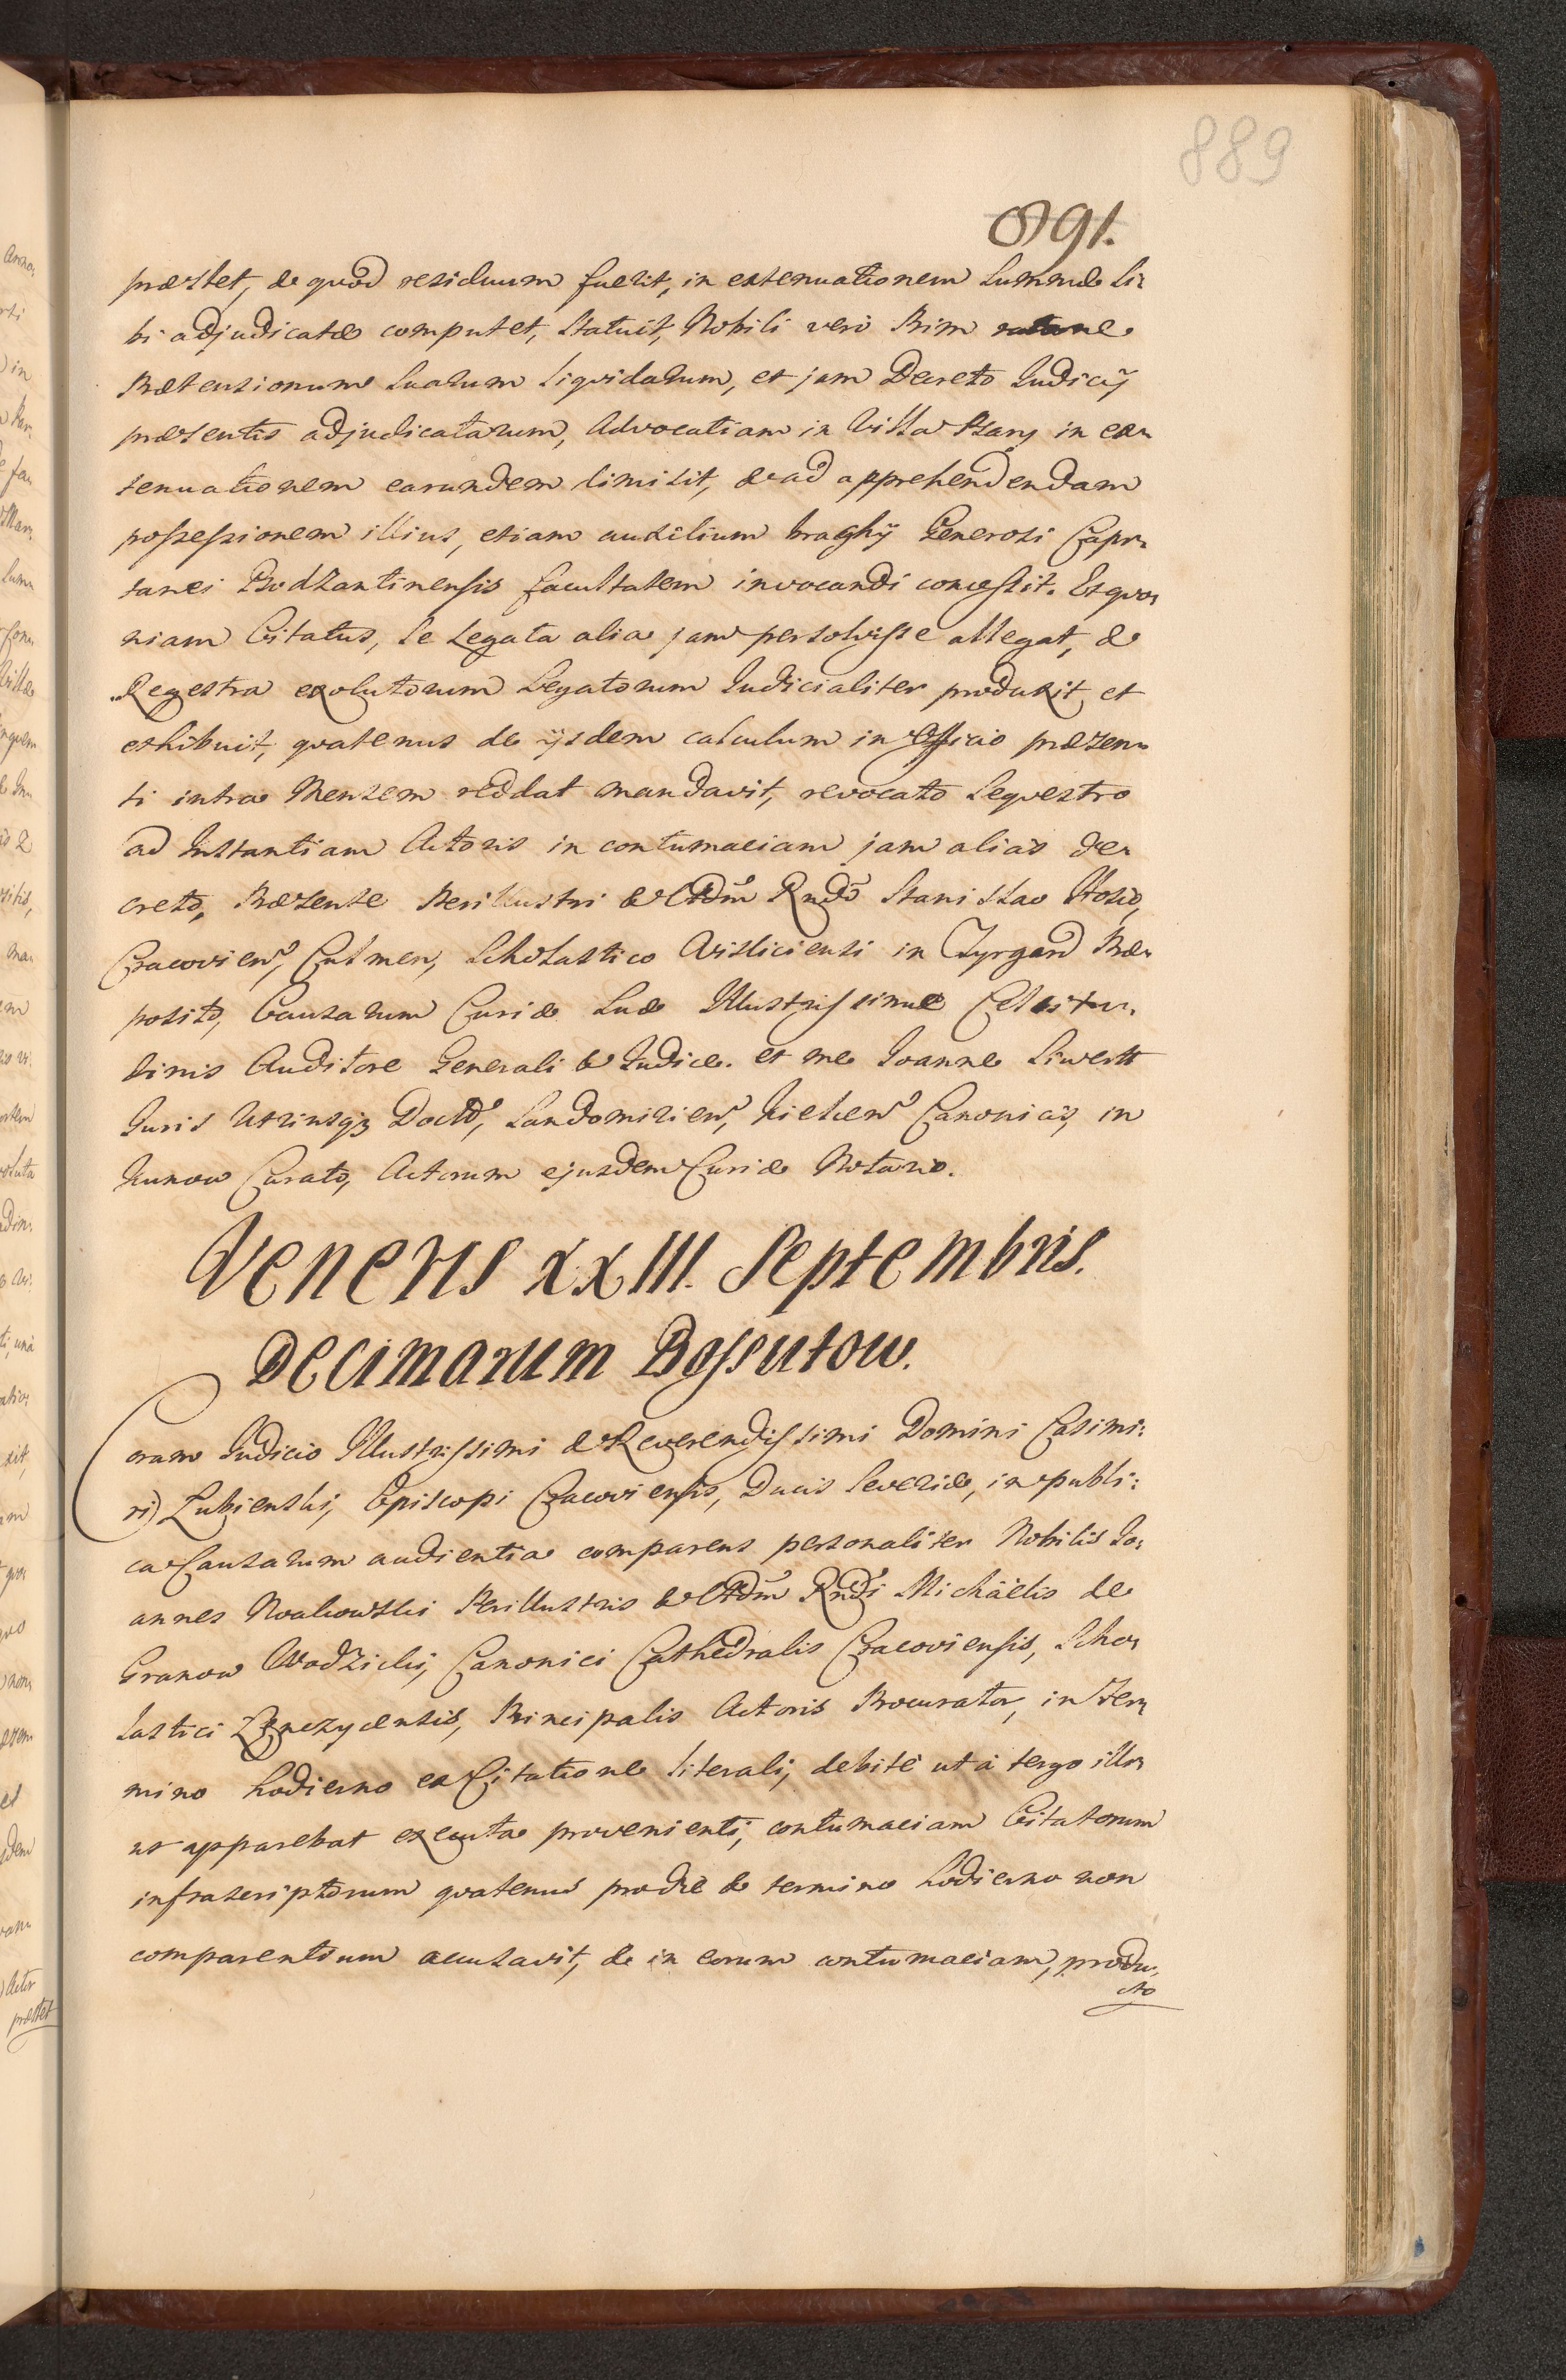 889
891.
præstet, & quod residuum fuerit, in extenuationem Summæ Si-
bi adjudicatæ computet, Statuit, Nobili vero Prim ratione
Prætensionum Suarum Liqvidarum, et jam Decreto Judicÿ
præsentis adjudicatarum, Advocatiam in Villa Psary in ex-
tenuationem earundem dimisit, & ad apprehendendam
possessionem illius, etiam auxilium brachÿ Generosi Capi-
tanei Bodzantinensis facultatem invocandi concessit. Et qvo-
niam Citatus, Se Legata alia jam persolvisse allegat, &
Regestra exolutorum Legatorum Judicialiter produxit, et
exhibuit, qvatenus de ijsdem calculum in Officio præsen-
ti intra Mensem reddat mandavit, revocato Seqvestro
ad Instantiam Actoris in contumaciam jam alias de-
creto, Præsente Perillustri & Adm Rndo Stanislao Hosio,
Cracovien, Culmen, Scholastico Visliciensi in Zyrgard Præ-
posito, Causarum Curiæ Suæ Illustrissimæ Celsitu-
dinis Auditore Generali & Judice. et me Joanne Siwertt
Juris Utriusqz Doctd, Sandomirien, Kielcen Canonico, in
Kunow Curato, Actorum ejusdem Curiæ Notario.
Veneris XXIII. Septembris.
Decimarum Bossutow.
Coram Judicio Illustrissimi & Reverendissimi Domini Casimi-
ri Łubienski, Episcopi Cracoviensis, Ducis Severiæ, in publi-
ca Causarum audientia comparens personaliter Nobilis Jo-
annes Noakowski Perillustris & Adm Rndi Michäelis de
Granow Wodzicki, Canonici Cathedralis Cracoviensis, Scho-
lastici Łęnczycensis, Principalis Actoris Procurator, in Ter-
mino hodierno ex Citatione literali, debite ut à tergo illi-
us apparebat executa provenienti, contumaciam Citatorum
infrascriptorum qvatenus pro die & termino hodierno non
comparentium accusavit, & in eorum contumaciam, produ-
cto